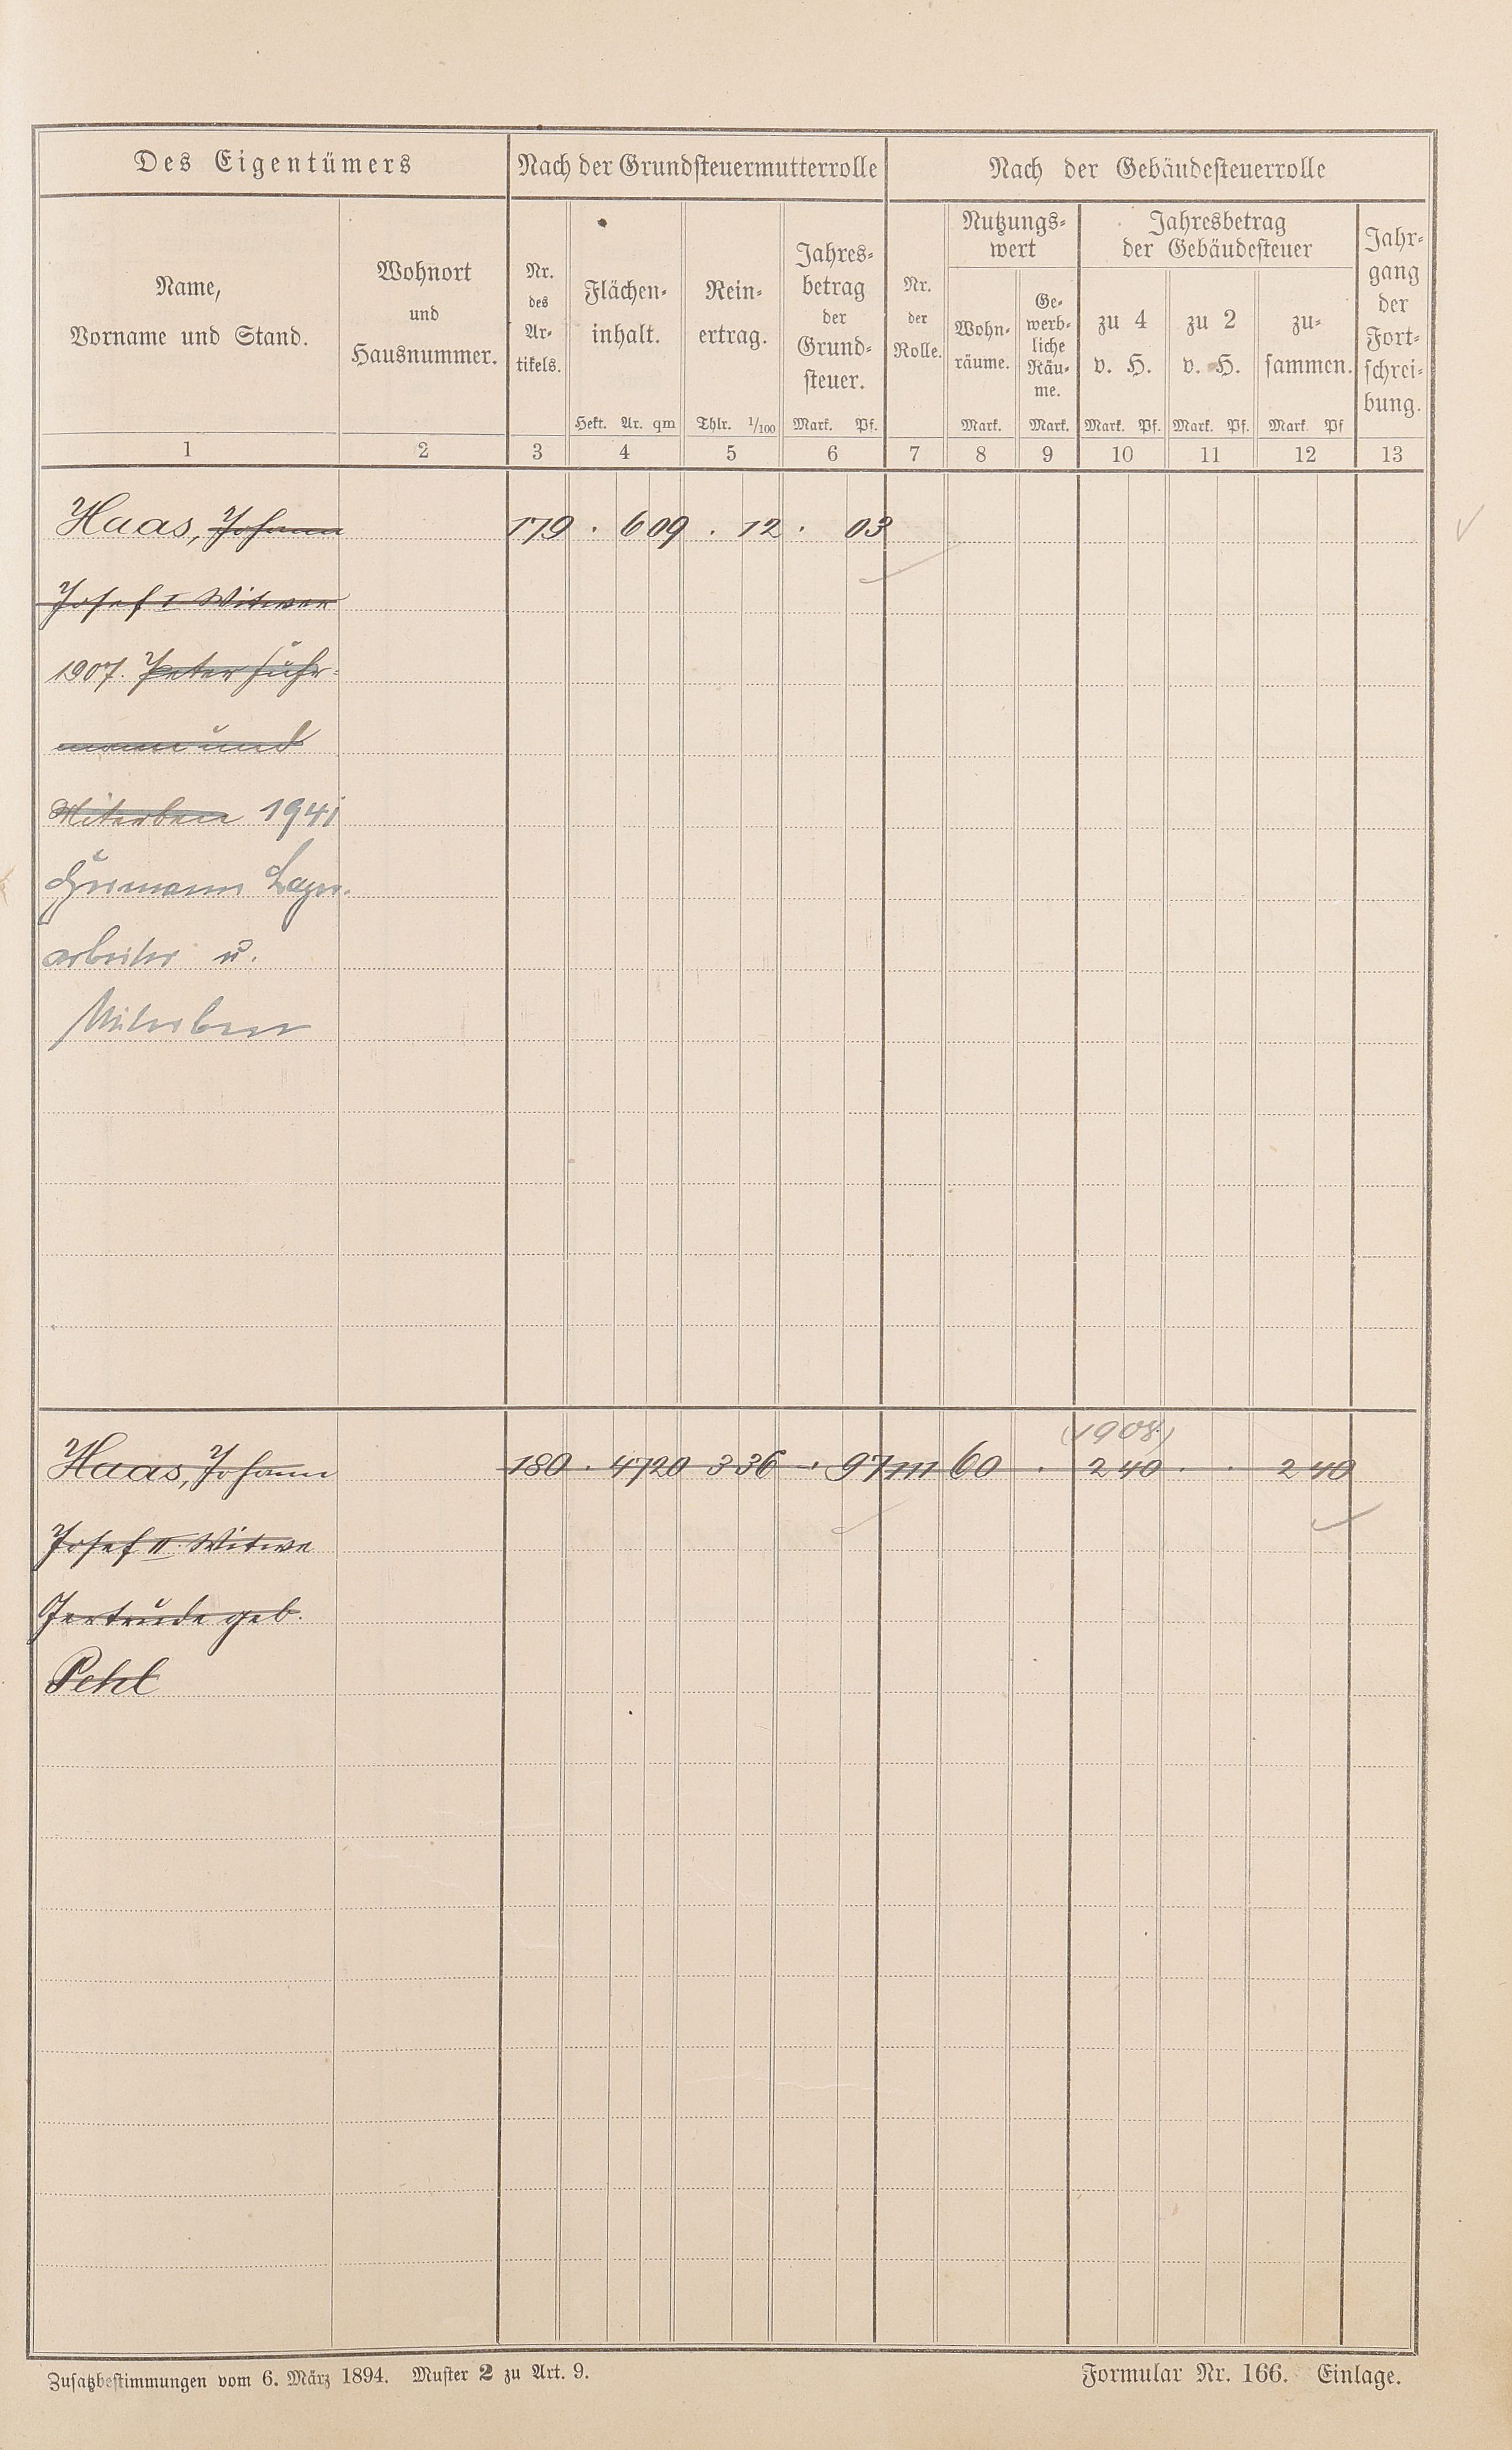 Des Eigentümers
Nach der Grundsteuermutterrolle
Nach der Gebäudesteuerrolle
Name,
Vorname und Stand.
Wohnort
und
Hausnummer.
Nr.
des
Ar-
tikels.
Flächen-
inhalt.
Hekt. Ar. qm
Rein-
ertrag.
Thlr. 1/100
Jahres-
betrag
der
Grund-
steuer.
Mark. Pf.
Nr.
der
Rolle.
Nutzungs-
wert
Wohn-
räume.
Mark.
Ge-
werb-
liche
Räu-
me.
Mark.
Jahresbetrag
der Gebäudesteuer
zu 4
v. H.
Mark. Pf.
zu 2
v. H.
Mark. Pf.
zu-
sammen.
Mark Pf
Jahr-
gang
der
Fort-
schrei-
bung.
1 2 3 4 5 6 7 8 9 10 11 12 13
Haas, Johann 179 . 6 09 . 12 . 03
Josef I Witwer
1907. Peter Fuhr-
mann und
Miterben 1941
Hermann Lager-
arbeiter u.
Miterben
(1908)
Haas, Johann 180 . 47 20 3 36 . 97 111 60 . 2 40 . . 2 40
Josef II. Witwe
Gertrude geb.
Pehl
Zusatzbestimmungen vom 6. März 1894. Muster 2 zu Art. 9.
Formular Nr. 166. Einlage.